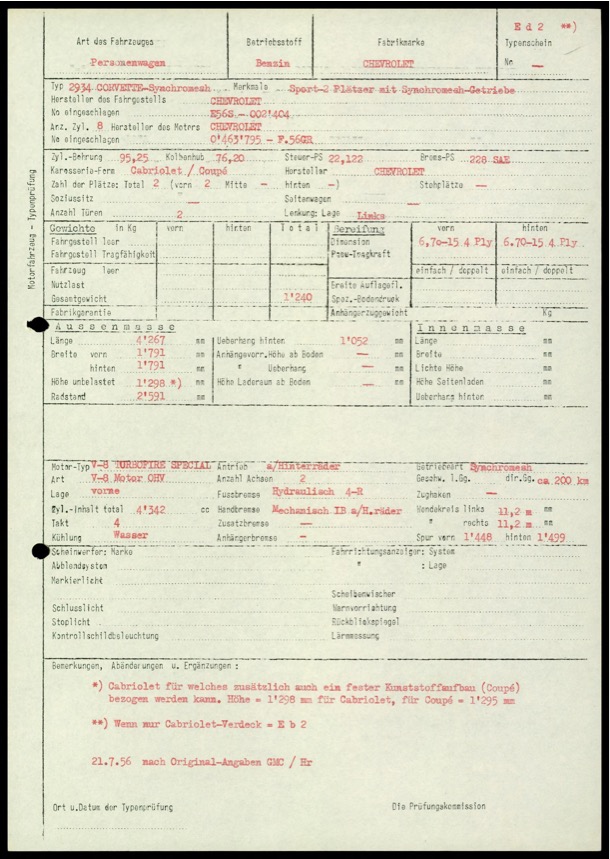 E d 2 **)
Art des Fahrzeuges Betriebsstoff Fabrikmarke Typenschein
Personenwagen Benzin CHEVROLET No —
Typ 2934 CORVETTE-Synchromesh Merkmale Sport-2 Plätzer mit Synchromesh-Getriebe
Hersteller des Fahrgestells CHEVROLET
No eingeschlagen E56S - 002'404
Anz. Zyl. 8 Hersteller des Motors CHEVROLET
No eingeschlagen 0'463'795 - F.56GR
Zyl.-Bohrung 95,25 Kolbenhub 76,20 Steuer-PS 22,122 Brems-PS 228 SAE
Karosserie-Form Cabriolet / Coupé Hersteller CHEVROLET
Zahl der Plätze: Total 2 (vorn 2 Mitte — hinten —) Stehplätze —
Soziussitz — Seitenwagen —
Anzahl Türen 2 Lenkung: Lage Links
Motorfahrzeug - Typenprüfung
Gewichte in Kg vorn hinten Total Bereifung vorn hinten
Fahrgestell leer Dimension 6,70-15 4 Ply 6.70-15 4 Ply
Fahrgestell Tragfähigkeit Pneu-Tragkraft
Fahrzeug leer einfach / doppelt einfach / doppelt
Nutzlast Breite Auflagefl.
Gesamtgewicht 1'240 Spez.-Bodendruck
Fabrikgarantie Anhängerzuggewicht Kg
Aussenmasse Innenmasse
Länge 4'267 mm Ueberhang hinten 1'052 mm Länge mm
Breite vorn 1'791 mm Anhängevorr. Höhe ab Boden — mm Breite mm
hinten 1'791 mm " Ueberhang — mm Lichte Höhe mm
Höhe unbelastet 1'298 *) mm Höhe Laderaum ab Boden — mm Höhe Seitenladen mm
Radstand 2'591 mm Ueberhang hinten mm
Motor-Typ V-8 TURBOFIRE SPECIAL Antrieb a/Hinterräder Getriebeart Synchromesh
Art V-8 Motor OHV Anzahl Achsen 2 Geschw. i.Gg. dir.Gg. ca 200 km
Lage vorne Fussbremse Hydraulisch 4-R Zughaken —
Zyl.-Inhalt total 4'342 cc Handbremse Mechanisch IB a/H.räder Wendekreis links 11,2 m
Takt 4 Zusatzbremse — " rechts 11,2 m
Kühlung Wasser Anhängerbremse — Spur vorn 1'448 hinten 1'499
Scheinwerfer: Marke Fahrrichtungsanzeiger: System
Abblendsystem " : Lage
Markierlicht
Scheibenwischer
Schlusslicht Warnvorrichtung
Stoplicht Rückblickspiegel
Kontrollschildbeleuchtung Lärmmessung
Bemerkungen, Abänderungen u. Ergänzungen :
*) Cabriolet für welches zusätzlich auch ein fester Kunststoffaufbau (Coupé)
bezogen werden kann. Höhe = 1'298 mm für Cabriolet, für Coupé = 1'295 mm
**) Wenn nur Cabriolet-Verdeck = E b 2
21.7.56 nach Original-Angaben GMC / Hr
Ort u.Datum der Typenprüfung Die Prüfungskommission